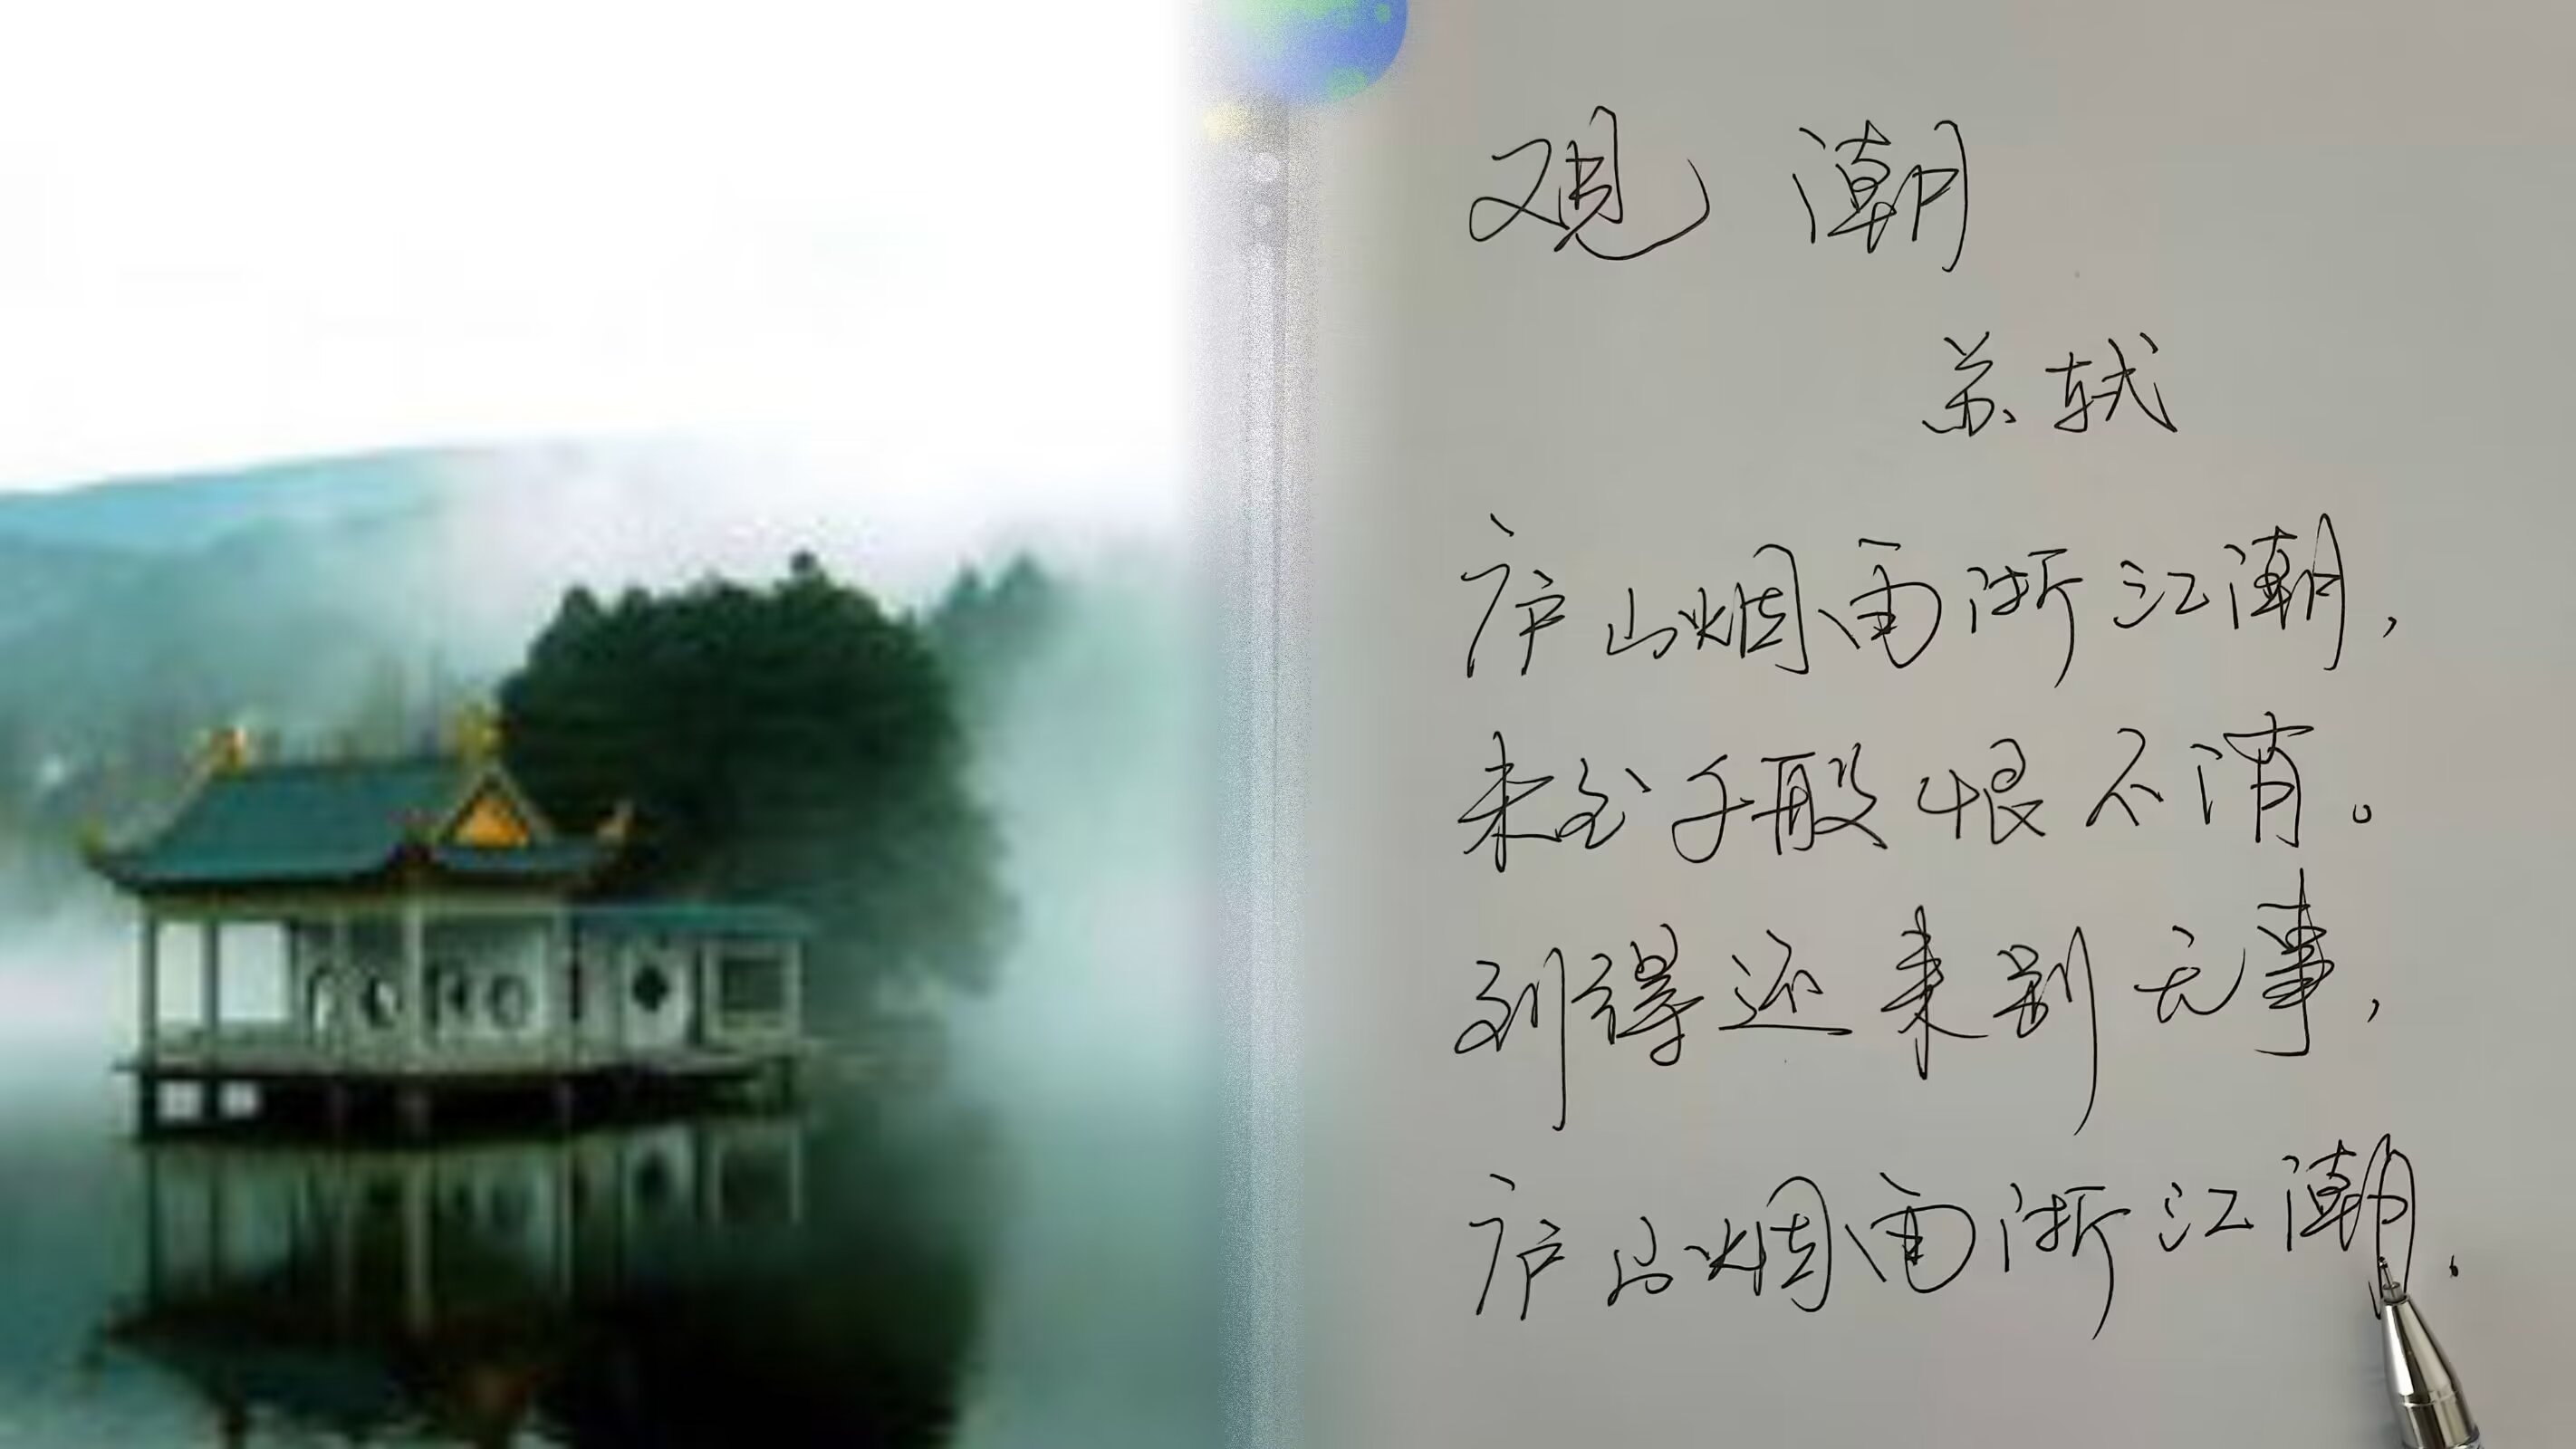 观潮
苏轼
庐山烟雨浙江潮，
未到千般恨不消。
到得还来别无事，
庐山烟雨浙江潮。